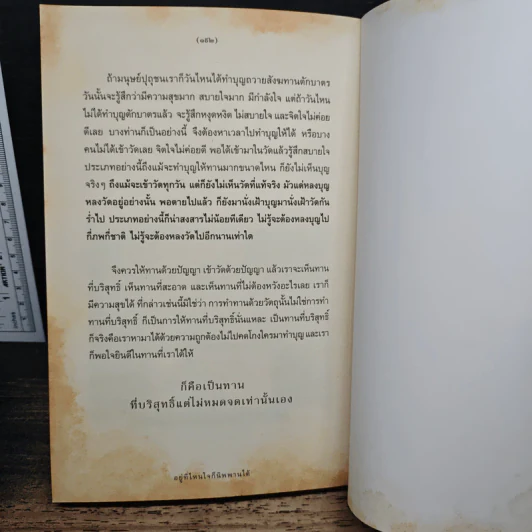 (๑๕๒)
ถ้ามนุษย์ปุถุชนเราก็วันไหนได้ทำบุญถวายสังฆทานตักบาตร
วันนั้นจะรู้สึกว่ามีความสุขมาก สบายใจมาก มีกำลังใจ แต่ถ้าวันไหน
ไม่ได้ทำบุญตักบาตรแล้ว จะรู้สึกหงุดหงิด ไม่สบายใจ และจิตใจไม่ค่อย
ดีเลย บางท่านก็เป็นอย่างนี้ จึงต้องหาเวลาไปทำบุญให้ได้ หรือบาง
คนไม่ได้เข้าวัดเลย จิตใจไม่ค่อยดี พอได้เข้ามาในวัดแล้วรู้สึกสบายใจ
ประเภทอย่างนี้ถึงแม้จะทำบุญให้ทานมากขนาดไหน ก็ยังไม่เห็นบุญ
จริงๆ ถึงแม้จะเข้าวัดทุกวัน แต่ก็ยังไม่เห็นวัดที่แท้จริง มัวแต่หลงบุญ
หลงวัดอยู่อย่างนั้น พอตายไปแล้ว ก็ยังมานั่งเฝ้าบุญมานั่งเฝ้าวัดกัน
ร่ำไป ประเภทอย่างนี้ก็น่าสงสารไม่น้อยทีเดียว ไม่รู้จะต้องหลงบุญไป
กี่ภพกี่ชาติ ไม่รู้จะต้องหลงวัดไปอีกนานเท่าใด
จึงควรให้ทานด้วยปัญญา เข้าวัดด้วยปัญญา แล้วเราจะเห็นทาน
ที่บริสุทธิ์ เห็นทานที่สะอาด และเห็นทานที่ไม่ต้องหวังอะไรเลย เราก็
มีความสุขได้ ที่กล่าวเช่นนี้มิใช่ว่า การทำทานด้วยวัตถุนั้นไม่ใช่การทำ
ทานที่บริสุทธิ์ ก็เป็นการให้ทานที่บริสุทธิ์นั่นแหละ เป็นทานที่บริสุทธิ์
ก็จริงคือเราหามาได้ด้วยความถูกต้องไม่ไปคดโกงใครมาทำบุญ และเรา
ก็พอใจยินดีในทานที่เราได้ให้
ก็คือเป็นทาน
ที่บริสุทธิ์แต่ไม่หมดจดเท่านั้นเอง
อยู่ที่ไหนใจก็นิพพานได้